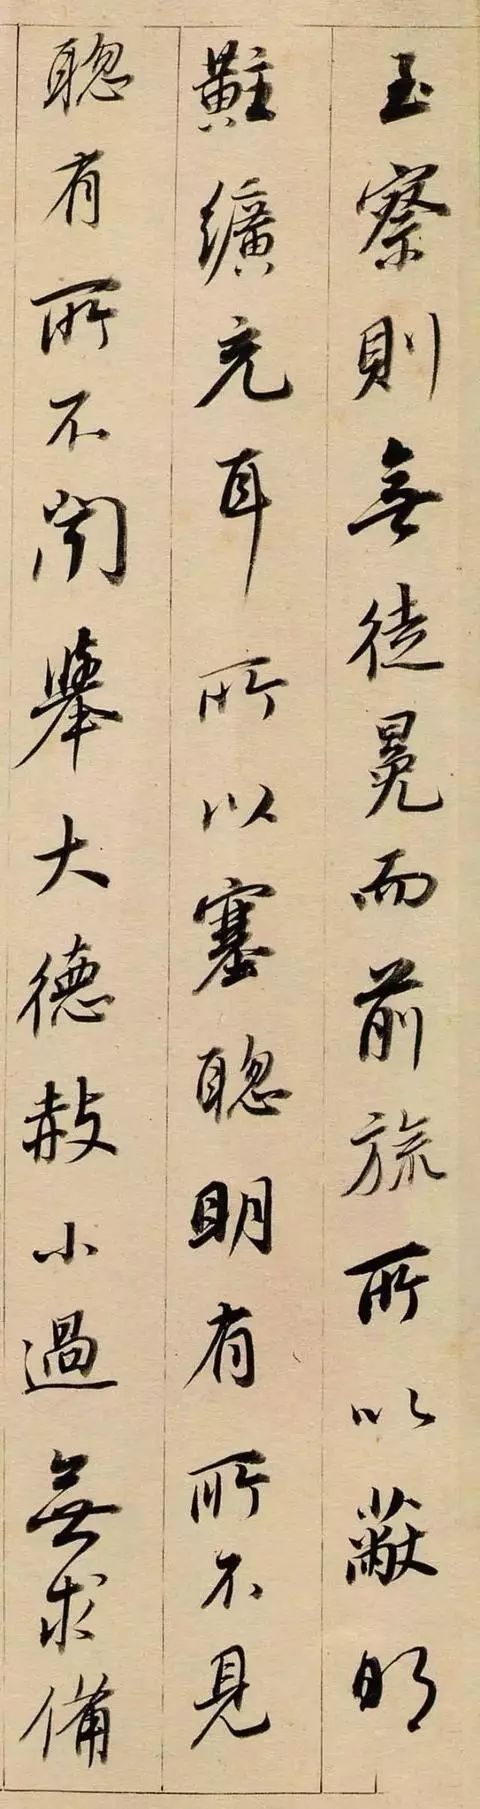 至察則無徒冕而前旒所以蔽明
黈纊充耳所以塞聰明有所不見
聰有所不聞舉大德赦小過無求備